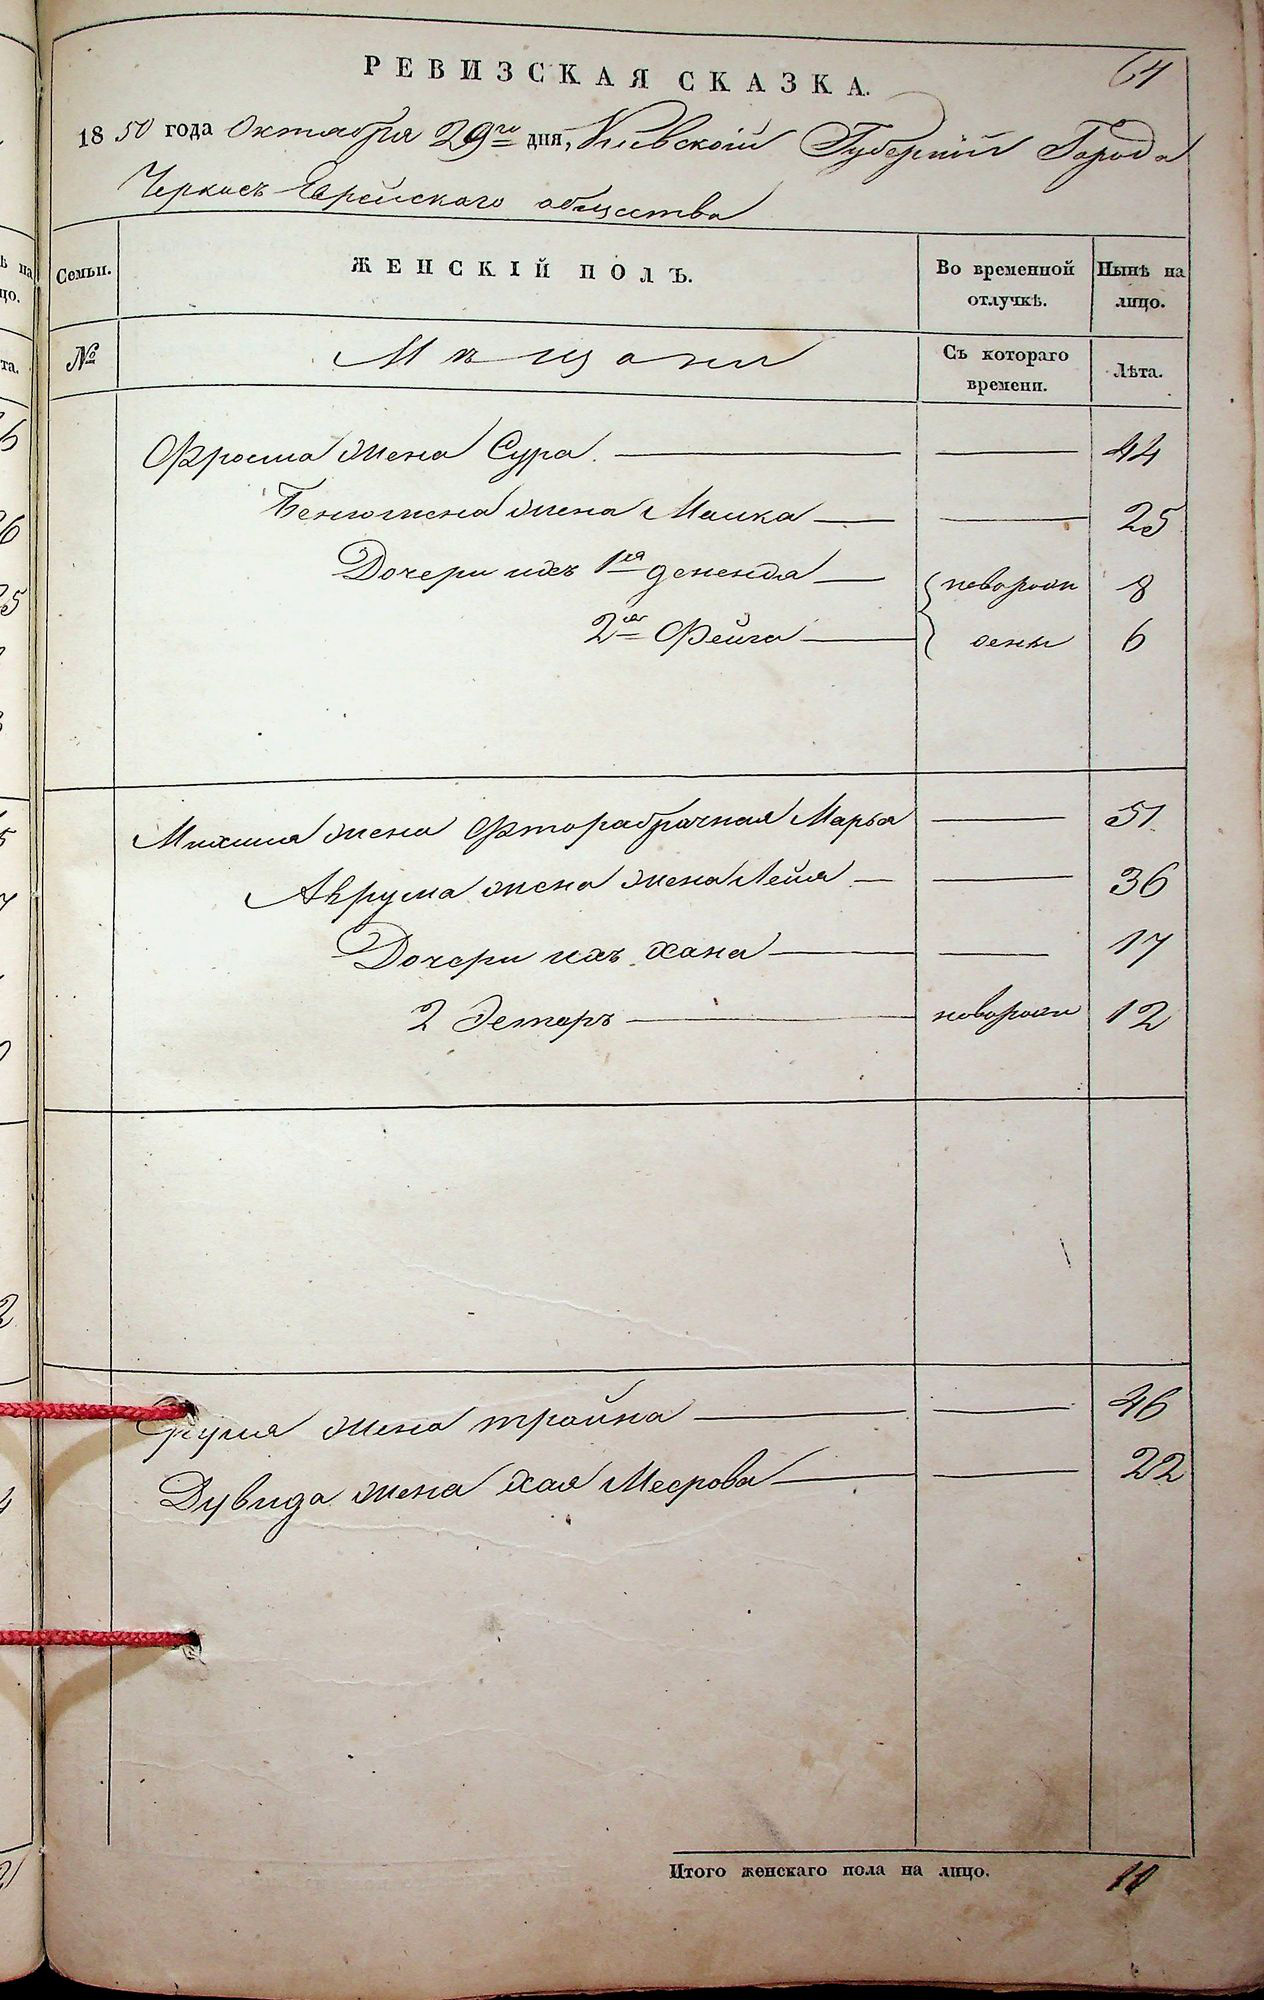 64
РЕВИЗСКАЯ СКАЗКА.
1850 года Октября 29го дня, Киевской Губерніи Города
Черкасъ Еврейского общества
Семьи.
ЖЕНСКІЙ ПОЛЪ.
Во временной
отлучкѣ.
Нынѣ на
лицо.
№
Мѣщани
Съ котораго
времени.
Лѣта.
Фроима жена Сура 44
Бенюмена жена Малка 25
Дочери ихъ 1ая 8
2ая Фейга 6
Михиля жена Фторабрачная Марья 51
Аврума жена жена Лейя 36
Дочери ихъ Хана 17
2 Эстеръ 12
жена трайна 46
Дувида жена Хая Меерова 22
Итого женскаго пола на лицо. 10